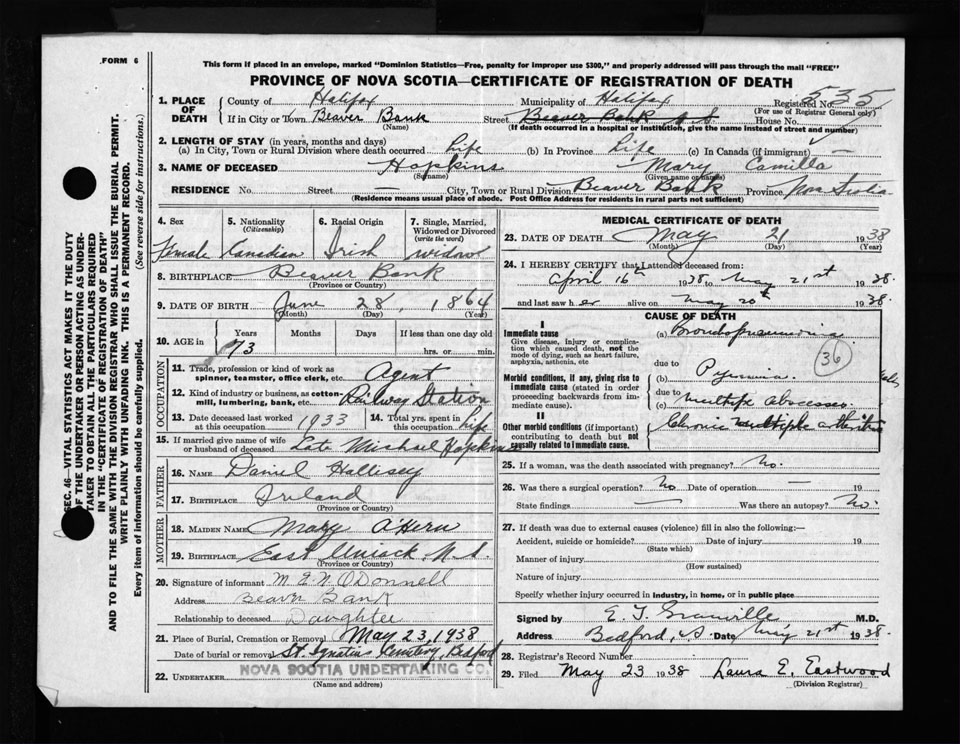 FORM 6
This form if placed in an envelope, marked "Dominion Statistics—Free, penalty for improper use $300," and properly addressed will pass through the mail "FREE"
PROVINCE OF NOVA SCOTIA—CERTIFICATE OF REGISTRATION OF DEATH
1. PLACE OF DEATH County of Halifax Municipality of Halifax Registered No. 535
(For use of Registrar General only)
If in City or Town Beaver Bank Street Beaver Bank N.S. House No.
(Name) (If death occurred in a hospital or institution, give the name instead of street and number)
2. LENGTH OF STAY (in years, months and days)
(a) In City, Town or Rural Division where death occurred Life (b) In Province Life (c) In Canada (if immigrant) —
3. NAME OF DECEASED Hopkins Mary Camilla
(Surname) (Given name or names)
RESIDENCE No. Street — City, Town or Rural Division Beaver Bank Province Nova Scotia
(Residence means usual place of abode. Post Office Address for residents in rural parts not sufficient)
SEC. 46—VITAL STATISTICS ACT MAKES IT THE DUTY
OF THE UNDERTAKER OR PERSON ACTING AS UNDER-
TAKER TO OBTAIN ALL THE PARTICULARS REQUIRED
IN THE "CERTIFICATE OF REGISTRATION OF DEATH"
AND TO FILE THE SAME WITH THE DIVISION REGISTRAR WHO SHALL ISSUE THE BURIAL PERMIT.
WRITE PLAINLY WITH UNFADING INK. THIS IS A PERMANENT RECORD.
Every item of information should be carefully supplied. (See reverse side for instructions.)
4. Sex 5. Nationality (Citizenship) 6. Racial Origin 7. Single, Married, Widowed or Divorced (write the word)
Female Canadian Irish widow
8. BIRTHPLACE Beaver Bank
(Province or Country)
9. DATE OF BIRTH June 28, 1864
(Month) (Day) (Year)
10. AGE in Years Months Days If less than one day old
73 hrs. or min.
OCCUPATION
11. Trade, profession or kind of work as spinner, teamster, office clerk, etc. Agent
12. Kind of industry or business, as cotton-mill, lumbering, bank, etc. Railway Station
13. Date deceased last worked at this occupation 1933 14. Total yrs. spent in this occupation life
15. If married give name of wife or husband of deceased Late Michael Hopkins
FATHER
16. NAME Daniel Hallisey
17. BIRTHPLACE Ireland
(Province or Country)
MOTHER
18. MAIDEN NAME Mary A'Hern
19. BIRTHPLACE East Uniack, N.S.
(Province or Country)
20. Signature of informant M.E.N. O'Donnell
Address Beaver Bank
Relationship to deceased Daughter
21. Place of Burial, Cremation or Removal May 23, 1938
Date of burial or removal St. Ignatius Cemetery, Bedford
22. UNDERTAKER NOVA SCOTIA UNDERTAKING CO.
(Name and address)
MEDICAL CERTIFICATE OF DEATH
23. DATE OF DEATH May 21 1938
(Month) (Day) (Year)
24. I HEREBY CERTIFY that I attended deceased from:
April 16th 1938 to May 21st 1938.
and last saw her alive on May 20th 1938.
CAUSE OF DEATH
I
Immediate cause (a) Bronchopneumonia
Give disease, injury or complication which caused death, not the mode of dying, such as heart failure, asphyxia, asthenia, etc
36
due to
Morbid conditions, if any, giving rise to immediate cause (stated in order proceeding backwards from immediate cause). (b) Pyemia
due to
(c) multiple abscesses
II
Other morbid conditions (if important) contributing to death but not causally related to immediate cause. Chronic multiple arthritis
25. If a woman, was the death associated with pregnancy? No.
26. Was there a surgical operation? No Date of operation — 19
State findings — Was there an autopsy? No.
27. If death was due to external causes (violence) fill in also the following:—
Accident, suicide or homicide? Date of injury 19
(State which)
Manner of injury
(How sustained)
Nature of injury
Specify whether injury occurred in industry, in home, or in public place
Signed by E. T. Granville M.D.
Address Bedford, N.S. Date May 21st 1938.
28. Registrar's Record Number
29. Filed May 23 1938 Laura E. Eastwood
(Division Registrar)